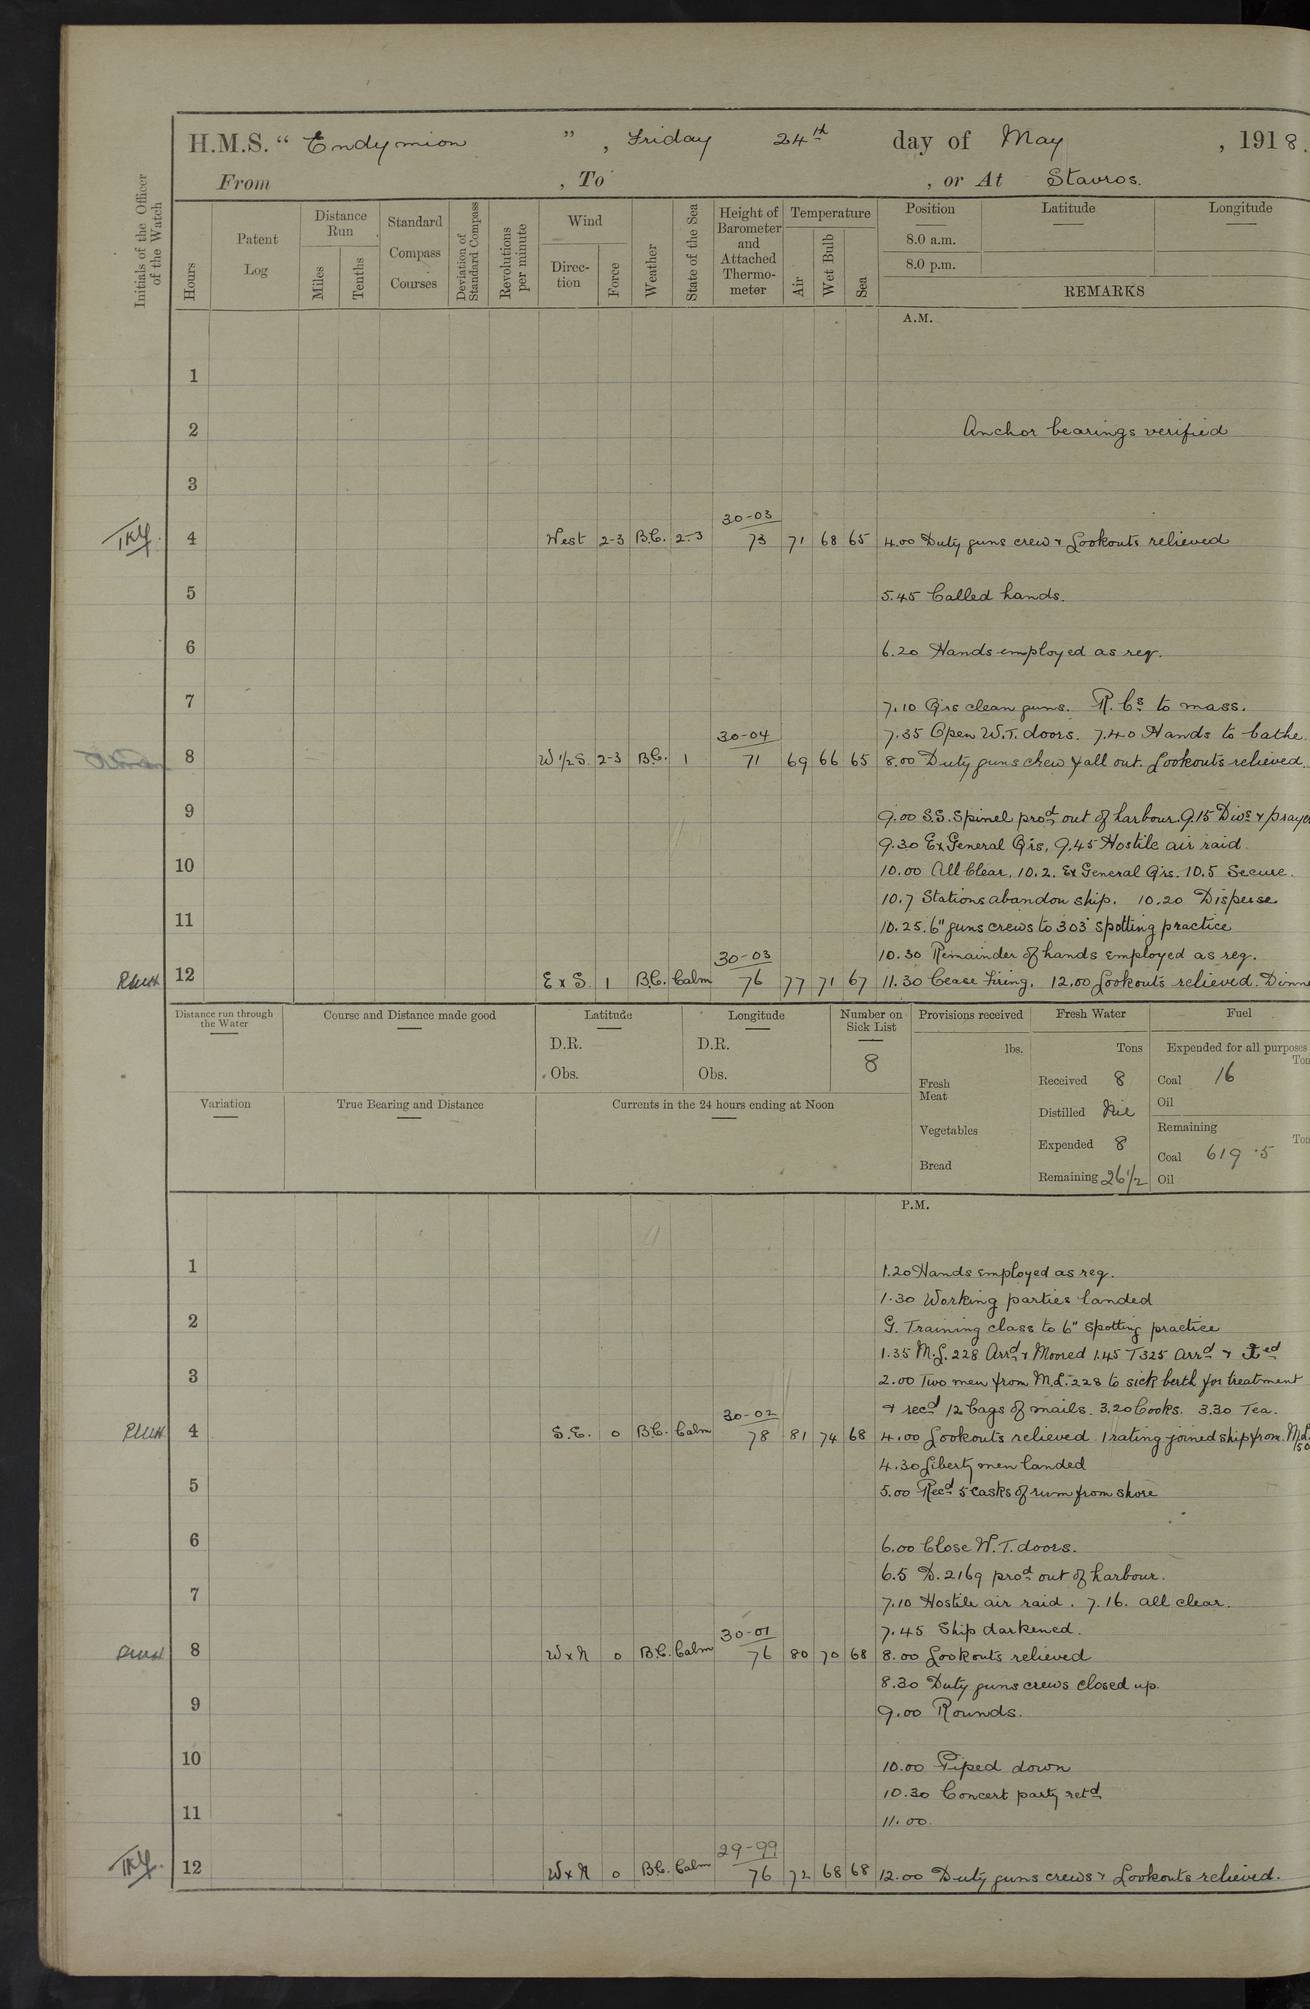 H.M.S. " Endymion ", Friday 24th day of May , 1918.
From , To , or At Stavros.
Initials of the Officer of the Watch
Hours
Patent Log
Distance Run
Miles
Tenths
Standard Compass Courses
Deviation of Standard Compass
Revolutions per minute
Wind
Direction
Force
Weather
State of the Sea
Height of Barometer and Attached Thermometer
Temperature
Air
Wet Bulb
Sea
Position Latitude Longitude
8.0 a.m.
8.0 p.m.
REMARKS
A.M.
1
2 Anchor bearings verified
3
30-03
4 West 2-3 B.C. 2-3 73 71 68 65 4.00 Duty guns crew & Lookouts relieved
5 5.45 Called hands.
6 6.20 Hands employed as req.
7 7.10 Qrs clean guns. R.Cs to mass.
30-04 7.35 Open W.T. doors. 7.40 Hands to bathe.
8 W 1/2 S. 2-3 B.C. 1 71 69 66 65 8.00 Duty guns crew & all out. Lookouts relieved.
9 9.00 S.S. Spinel procd out of harbour. 9.15 Divs &
9.30 Ex General Qrs, 9.45 Hostile air raid.
10 10.00 All Clear, 10.2. Ex General Qrs. 10.5 Secure.
10.7 Stations abandon ship. 10.20 Disperse
11 10.25. 6" guns crews to 303 spotting practice
30-03 10.30 Remainder of hands employed as req.
12 E x S. 1 B.C. Calm 76 77 71 67 11.30 Cease Firing. 12.00 Lookouts relieved.
Distance run through the Water
Course and Distance made good
Latitude
D.R.
Obs.
Longitude
D.R.
Obs.
Number on Sick List
8
Provisions received
lbs.
Fresh Meat
Vegetables
Bread
Fresh Water
Tons
Received 8
Distilled Nil
Expended 8
Remaining 26 1/2
Fuel
Expended for all purposes
Coal 16
Oil
Remaining
Coal 619.5
Oil
Variation
True Bearing and Distance
Currents in the 24 hours ending at Noon
P.M.
1 1.20 Hands employed as req.
1.30 Working parties landed
2 G. Training class to 6" spotting practice
1.35 M.L. 228 Arrd & Moored 1.45 T325 Arrd &
3 2.00 Two men from M.L. 228 to sick berth for treatment
30-02 & recd 12 bags of mails. 3.20 Cooks. 3.30 Tea.
4 S.E. 0 B.C. Calm 78 81 74 68 4.00 Lookouts relieved 1 rating joined ship from M.L.
4.30 Liberty men landed
5 5.00 Recd 5 casks of rum from shore
6 6.00 Close W.T. doors.
6.5 D.2169 procd out of harbour.
7 7.10 Hostile air raid. 7.16. all clear.
30-01 7.45 Ship darkened.
8 W x N 0 B.C. Calm 76 80 70 68 8.00 Lookouts relieved
8.30 Duty guns crews closed up.
9 9.00 Rounds.
10 10.00 Piped down
10.30 Concert party retd
11 11.00
29-99
12 W x N 0 B.C. Calm 76 72 68 68 12.00 Duty guns crews & Lookouts relieved.